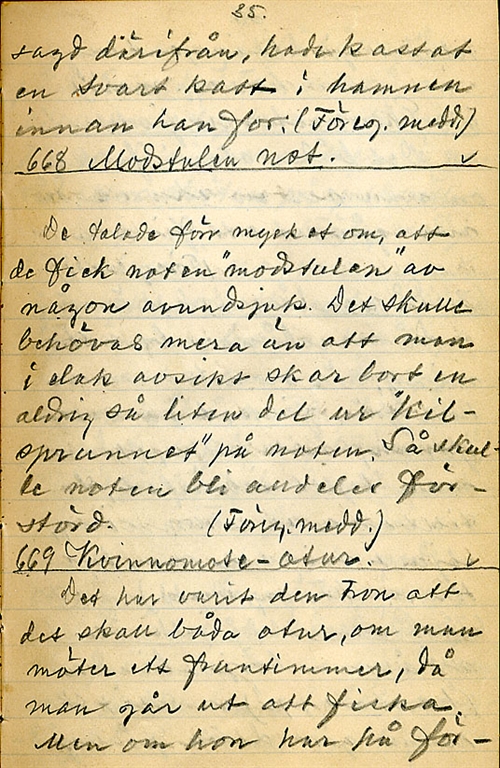 35.
sagd därifrån, hade kastat
en svart katt i hamnen
innan han for. (Föreg. medd.)
668 Modstulen not. ✓
De talade förr mycket om, att
de fick noten "modstulen" av
någon avundsjuk. Det skulle
behövas mera än att man
i elak avsikt skar bort en
aldrig så liten del ur "kil-
sprunnet" på noten. Så skul-
le noten bli andeles för-
störd. (Föreg. medd.)
669 Kvinnomöte - otur. ✓
Det har varit den tron att
det skall båda otur, om man
möter ett fruntimmer, då
man går ut att fiska.
Men om hon har på för-